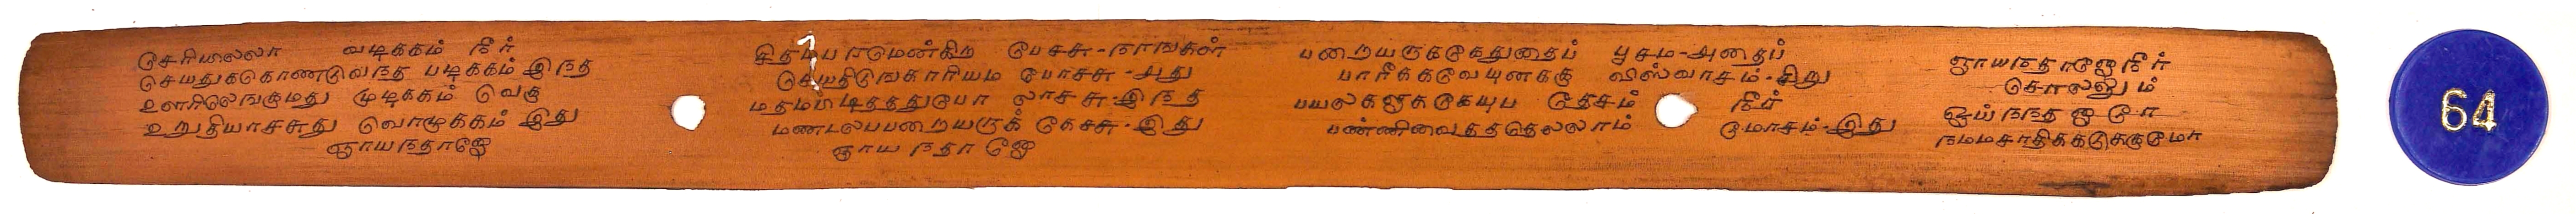 செரியலலா வடிக்கம் நீர்
செயதுககொண்டுவநத படிக்கம் இநத
உளளிலெஙகுமது முடிக்கம் வெகு
உறுதியாசசுது வொழுக்கம் இது
ஞாயநதானே
சிதம்பரமெண்கிற பேசசு - நாஙகள்
செயதிடுஙகாரியம போசசு - அது
மதமபிடிததுபோ லாசசு - இநத
மணடலபபறையருக் கேசசு - இது
ஞாய நதா னே
பறையருககேதுதைப் பூசம - அதைப்
பாரீககவேயுனககு விஸ்வாசம் - சிறு
பயலகளுககேயுப தேசம் நீர்
பண்ணிவைததெலலாம் மோசம் - இது
ஞாயநதானேநீர்
சொலலும்
ஓய் நநத னாரே
நமமசாதிககடுககுமோ
64